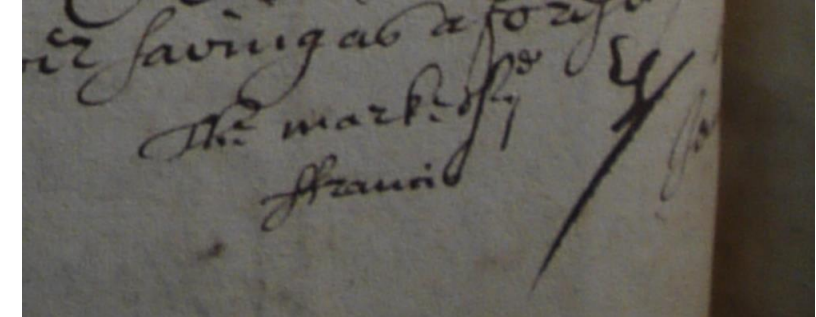 saving as afores
The marke of ye sd
ffrancis